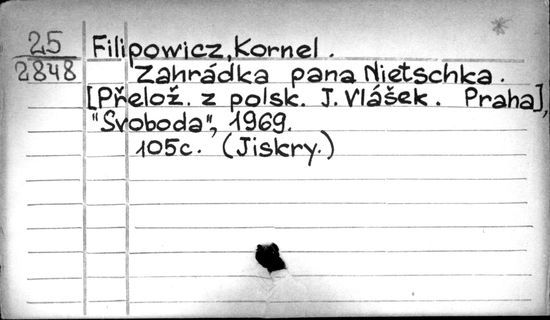 25
2848
Filipowicz, Kornel.
Zahrádka pana Nietschka.
[Přelož. z polsk. J. Vlášek. Praha],
"Svoboda", 1969.
105c. (Jiskry.)